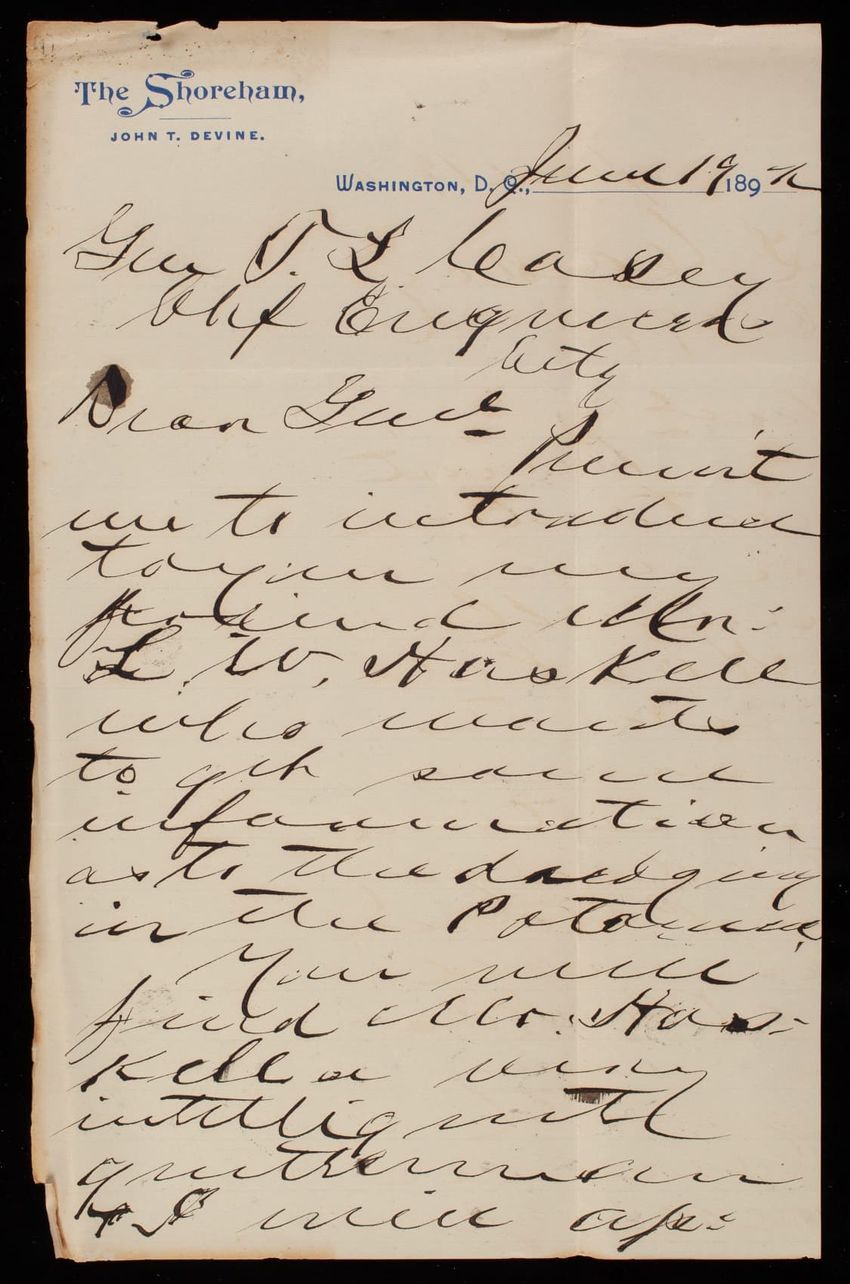 The Shoreham,
JOHN T. DEVINE.
WASHINGTON, D. C., June 19 1892
Gen T. L Casey
Chf Engineers
City
Dear Genl
Permit
me to introduce
to you my
friend Mr.
L. W. Haskell
who wants
to get some
information
as to the dredging
in the Potomac.
You will
find Mr. Has-
kell a very
intelligent
gentleman
& I will ap-